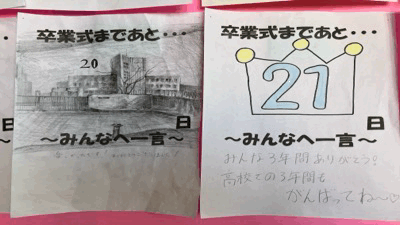 卒業式まであと・・・
20
日
～みんなへ一言～
卒業式まであと・・・
21
日
～みんなへ一言～
みんな3年間ありがとう!
高校での3年間も
がんばってね～♡